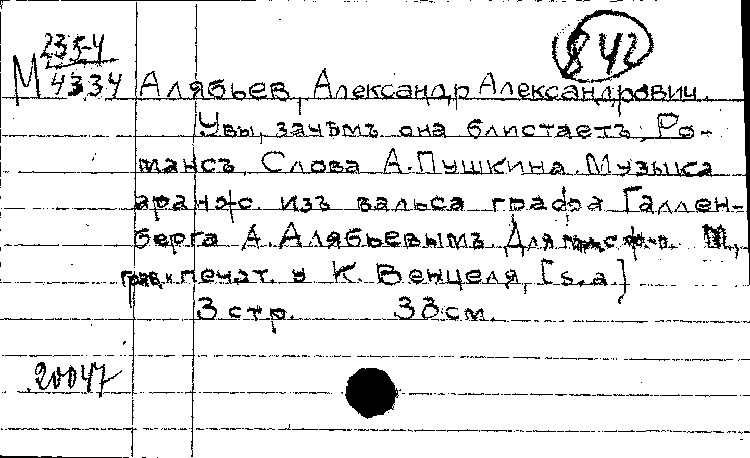 842
М 235-4
4334
Алябьев, Александр Александрович.
Увы, зачѣмъ она блистаетъ, Ро-
мансъ. Слова А. Пушкина. Музыка
аранж. изъ вальса графа Галлен-
берга А. Алябьевымъ. Для ф-п. М.,
грав. и печат. у К. Венцеля, [s.a.]
3 стр. 33 см.
20047